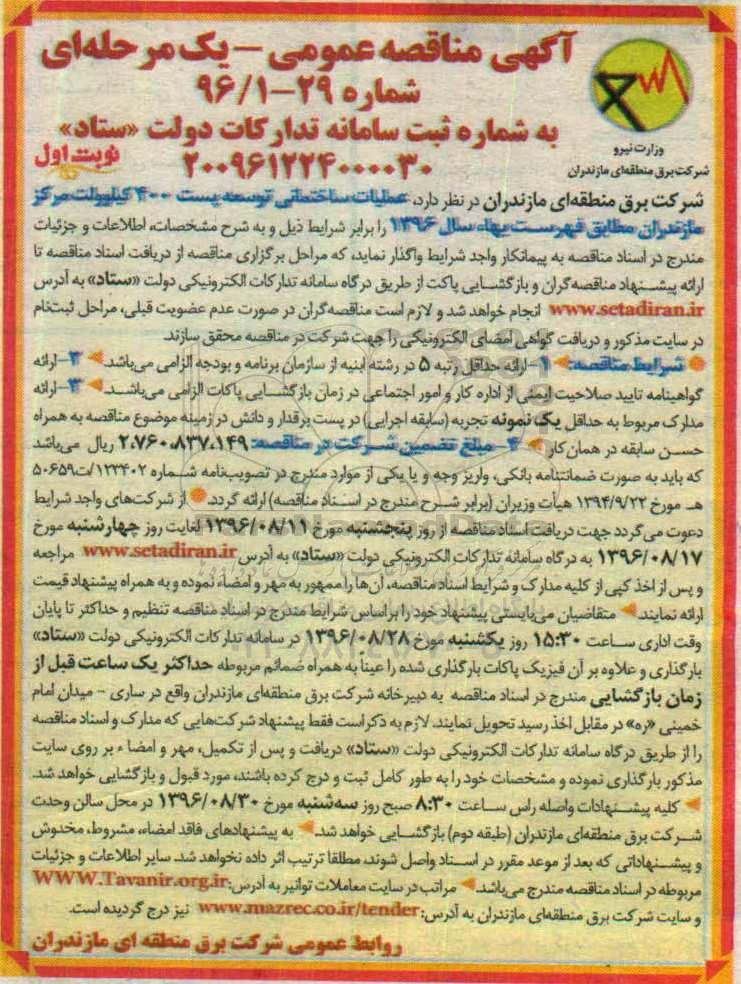 آگهی مناقصه عمومی – یک مرحله‌ای
شماره ۲۹-۹۶/۱
به شماره ثبت سامانه تدارکات دولت «ستاد»
۲۰۰۹۶۱۲۲۴۰۰۰۰۳۰
نوبت اول
وزارت نیرو
شرکت برق منطقه‌ای مازندران
شرکت برق منطقه‌ای مازندران در نظر دارد، عملیات ساختمانی توسعه پست ۴۰۰ کیلوولت مرکز
مازندران مطابق فهرست بهاء سال ۱۳۹۶ را برابر شرایط ذیل و به شرح مشخصات، اطلاعات و جزئیات
مندرج در اسناد مناقصه به پیمانکار واجد شرایط واگذار نماید، که مراحل برگزاری مناقصه از دریافت اسناد مناقصه تا
ارائه پیشنهاد مناقصه‌گران و بازگشایی پاکت از طریق درگاه سامانه تدارکات الکترونیکی دولت «ستاد» به آدرس
www.setadiran.ir انجام خواهد شد و لازم است مناقصه‌گران در صورت عدم عضویت قبلی، مراحل ثبت‌نام
در سایت مذکور و دریافت گواهی امضای الکترونیکی را جهت شرکت در مناقصه محقق سازند.
شرایط مناقصه: ۱-ارائه حداقل رتبه ۵ در رشته ابنیه از سازمان برنامه و بودجه الزامی می‌باشد. ۲-ارائه
گواهینامه تایید صلاحیت ایمنی از اداره کار و امور اجتماعی در زمان بازگشایی پاکات الزامی می‌باشد. ۳-ارائه
مدارک مربوط به حداقل یک نمونه تجربه (سابقه اجرایی) در پست برقدار و دانش در زمینه موضوع مناقصه به همراه
حسن سابقه در همان کار ۴- مبلغ تضمین شرکت در مناقصه: ۲،۷۶۰،۸۳۷،۱۴۹ ریال می‌باشد
که باید به صورت ضمانتنامه بانکی، واریز وجه و یا یکی از موارد مندرج در تصویب‌نامه شماره ۱۲۳۴۰۲/ت۵۰۶۵۹
هـ مورخ ۱۳۹۴/۹/۲۲ هیأت وزیران (برابر شرح مندرج در اسناد مناقصه) ارائه گردد. از شرکت‌های واجد شرایط
دعوت می‌گردد جهت دریافت اسناد مناقصه از روز پنجشنبه مورخ ۱۳۹۶/۰۸/۱۱ لغایت روز چهارشنبه مورخ
۱۳۹۶/۰۸/۱۷ به درگاه سامانه تدارکات الکترونیکی دولت «ستاد» به آدرس www.setadiran.ir مراجعه
و پس از اخذ کپی از کلیه مدارک و شرایط اسناد مناقصه، آن‌ها را ممهور به مهر و امضاء نموده و به همراه پیشنهاد قیمت
ارائه نمایند. متقاضیان می‌بایستی پیشنهاد خود را براساس شرایط مندرج در اسناد مناقصه تنظیم و حداکثر تا پایان
وقت اداری ساعت ۱۵:۳۰ روز یکشنبه مورخ ۱۳۹۶/۰۸/۲۸ در سامانه تدارکات الکترونیکی دولت «ستاد»
بارگذاری و علاوه بر آن فیزیک پاکات بارگذاری شده را عیناً به همراه ضمائم مربوطه حداکثر یک ساعت قبل از
زمان بازگشایی مندرج در اسناد مناقصه به دبیرخانه شرکت برق منطقه‌ای مازندران واقع در ساری - میدان امام
خمینی «ره» در مقابل اخذ رسید تحویل نمایند. لازم به ذکر است فقط پیشنهاد شرکت‌هایی که مدارک و اسناد مناقصه
را از طریق درگاه سامانه تدارکات الکترونیکی دولت «ستاد» دریافت و پس از تکمیل، مهر و امضاء بر روی سایت
مذکور بارگذاری نموده و مشخصات خود را به طور کامل ثبت و درج کرده باشند، مورد قبول و بازگشایی خواهد شد.
کلیه پیشنهادات واصله راس ساعت ۸:۳۰ صبح روز سه‌شنبه مورخ ۱۳۹۶/۰۸/۳۰ در محل سالن وحدت
شرکت برق منطقه‌ای مازندران (طبقه دوم) بازگشایی خواهد شد. به پیشنهادهای فاقد امضاء، مشروط، مخدوش
و پیشنهاداتی که بعد از موعد مقرر در اسناد واصل شوند، مطلقا ترتیب اثر داده نخواهد شد. سایر اطلاعات و جزئیات
مربوطه در اسناد مناقصه مندرج می‌باشد. مراتب در سایت معاملات توانیر به آدرس: WWW.Tavanir.org.ir
و سایت شرکت برق منطقه‌ای مازندران به آدرس: www.mazrec.co.ir/tender نیز درج گردیده است.
روابط عمومی شرکت برق منطقه ای مازندران